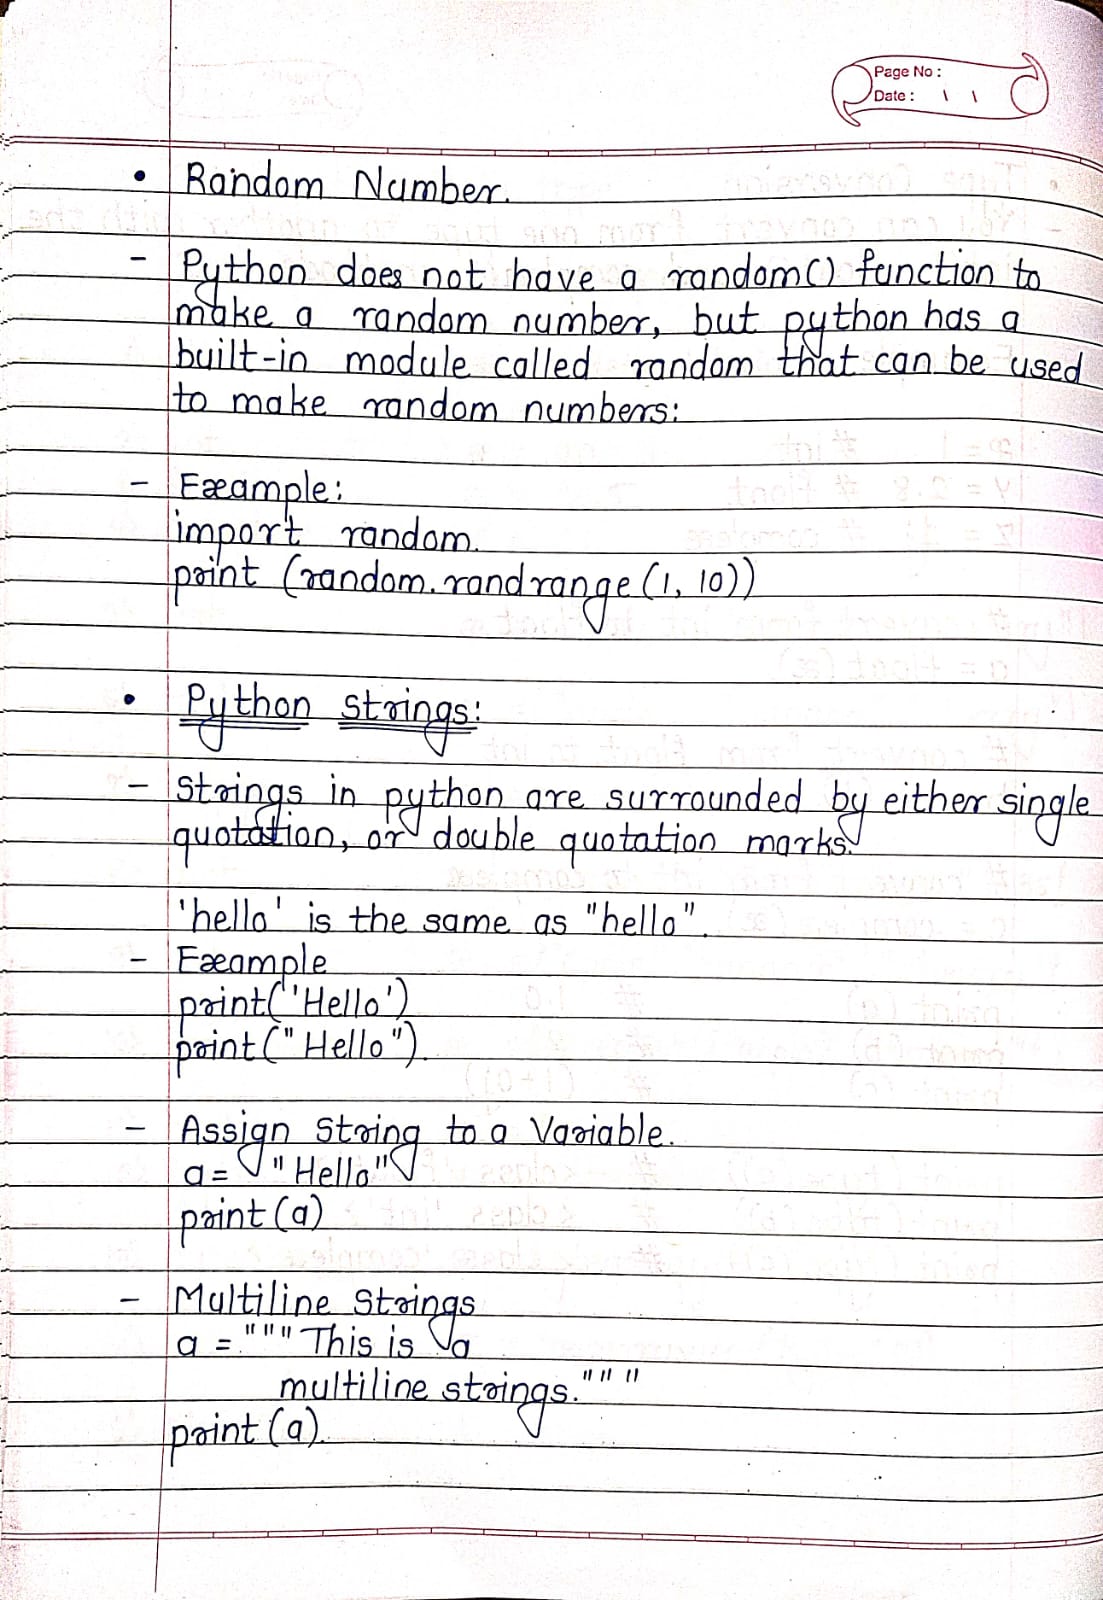 Page No :
Date : \ \
• Random Number.
- Python does not have a random() function to
make a random number, but python has a
built-in module called random that can be used
to make random numbers:
- Example:
import random.
print (random.randrange(1, 10))
• Python Strings:
- Strings in python are surrounded by either single
quotation, or double quotation marks.
'hello' is the same as "hello".
- Example
print('Hello')
print("Hello").
- Assign String to a Variable.
a = "Hello"
print (a)
- Multiline Strings
a = """This is a
multiline strings."""
print (a).